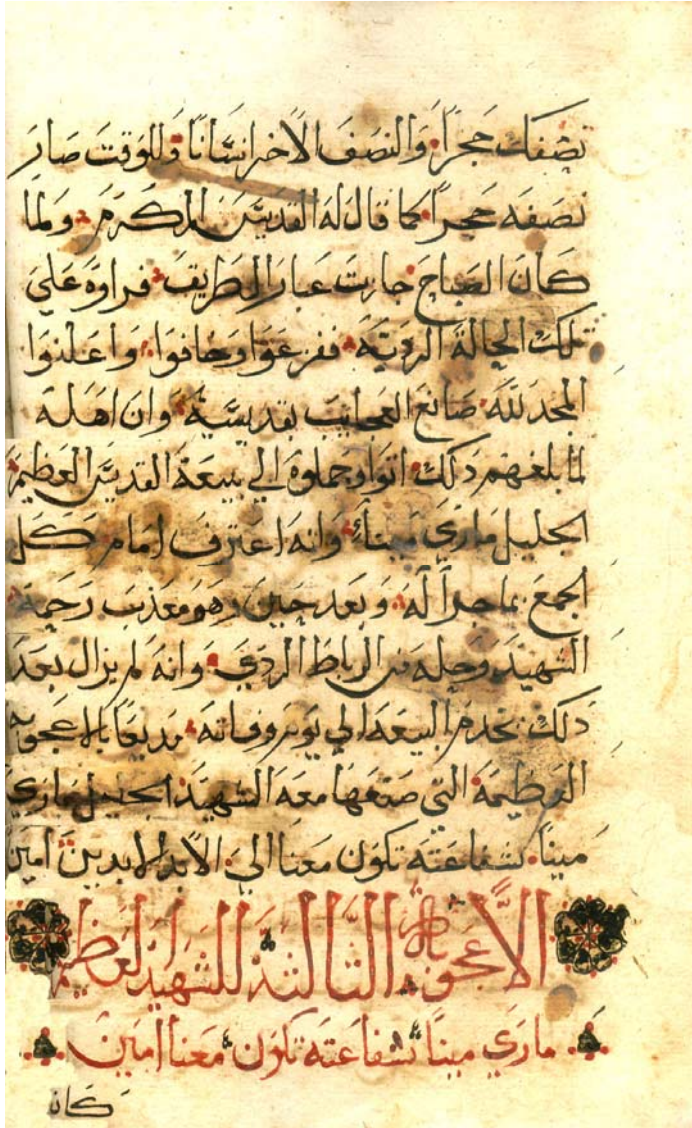 نصفك حجراً والنصف الاخر انسّانا وللوقت صار
نصفه حجراً كما قال له القديسّ المكرم ولما
كان الصباح جازت عبار الطريق فراوه علي
تلك الحالة الرديّه ففزعوا وخافوا واعلنوا
المجد للّه صانع العجايب بقديسّيه وان اهله
لما بلغهم ذلك اتوا وحملوه الي بيعة القديسّ العظيم
الجليل ماري مينا وانه اعترف امام كل
الجمع بما جرا له وبعد حين وهو معذب رحمه
الشهيد وحله من الرباط الردي وانه لم يزال بعد
ذلك يخدم البيعه الي يوم وفاته مديعاً بالاعجوبه
العظيمه التي صنعها معه الشهيد الجليل ماري
مينا شفاعته تكون معنا الي الابد الابدين امين
الاعجوبة الثالثة للشهيد العظيم
ماري مينا شفاعته تكون معنا امين
كان